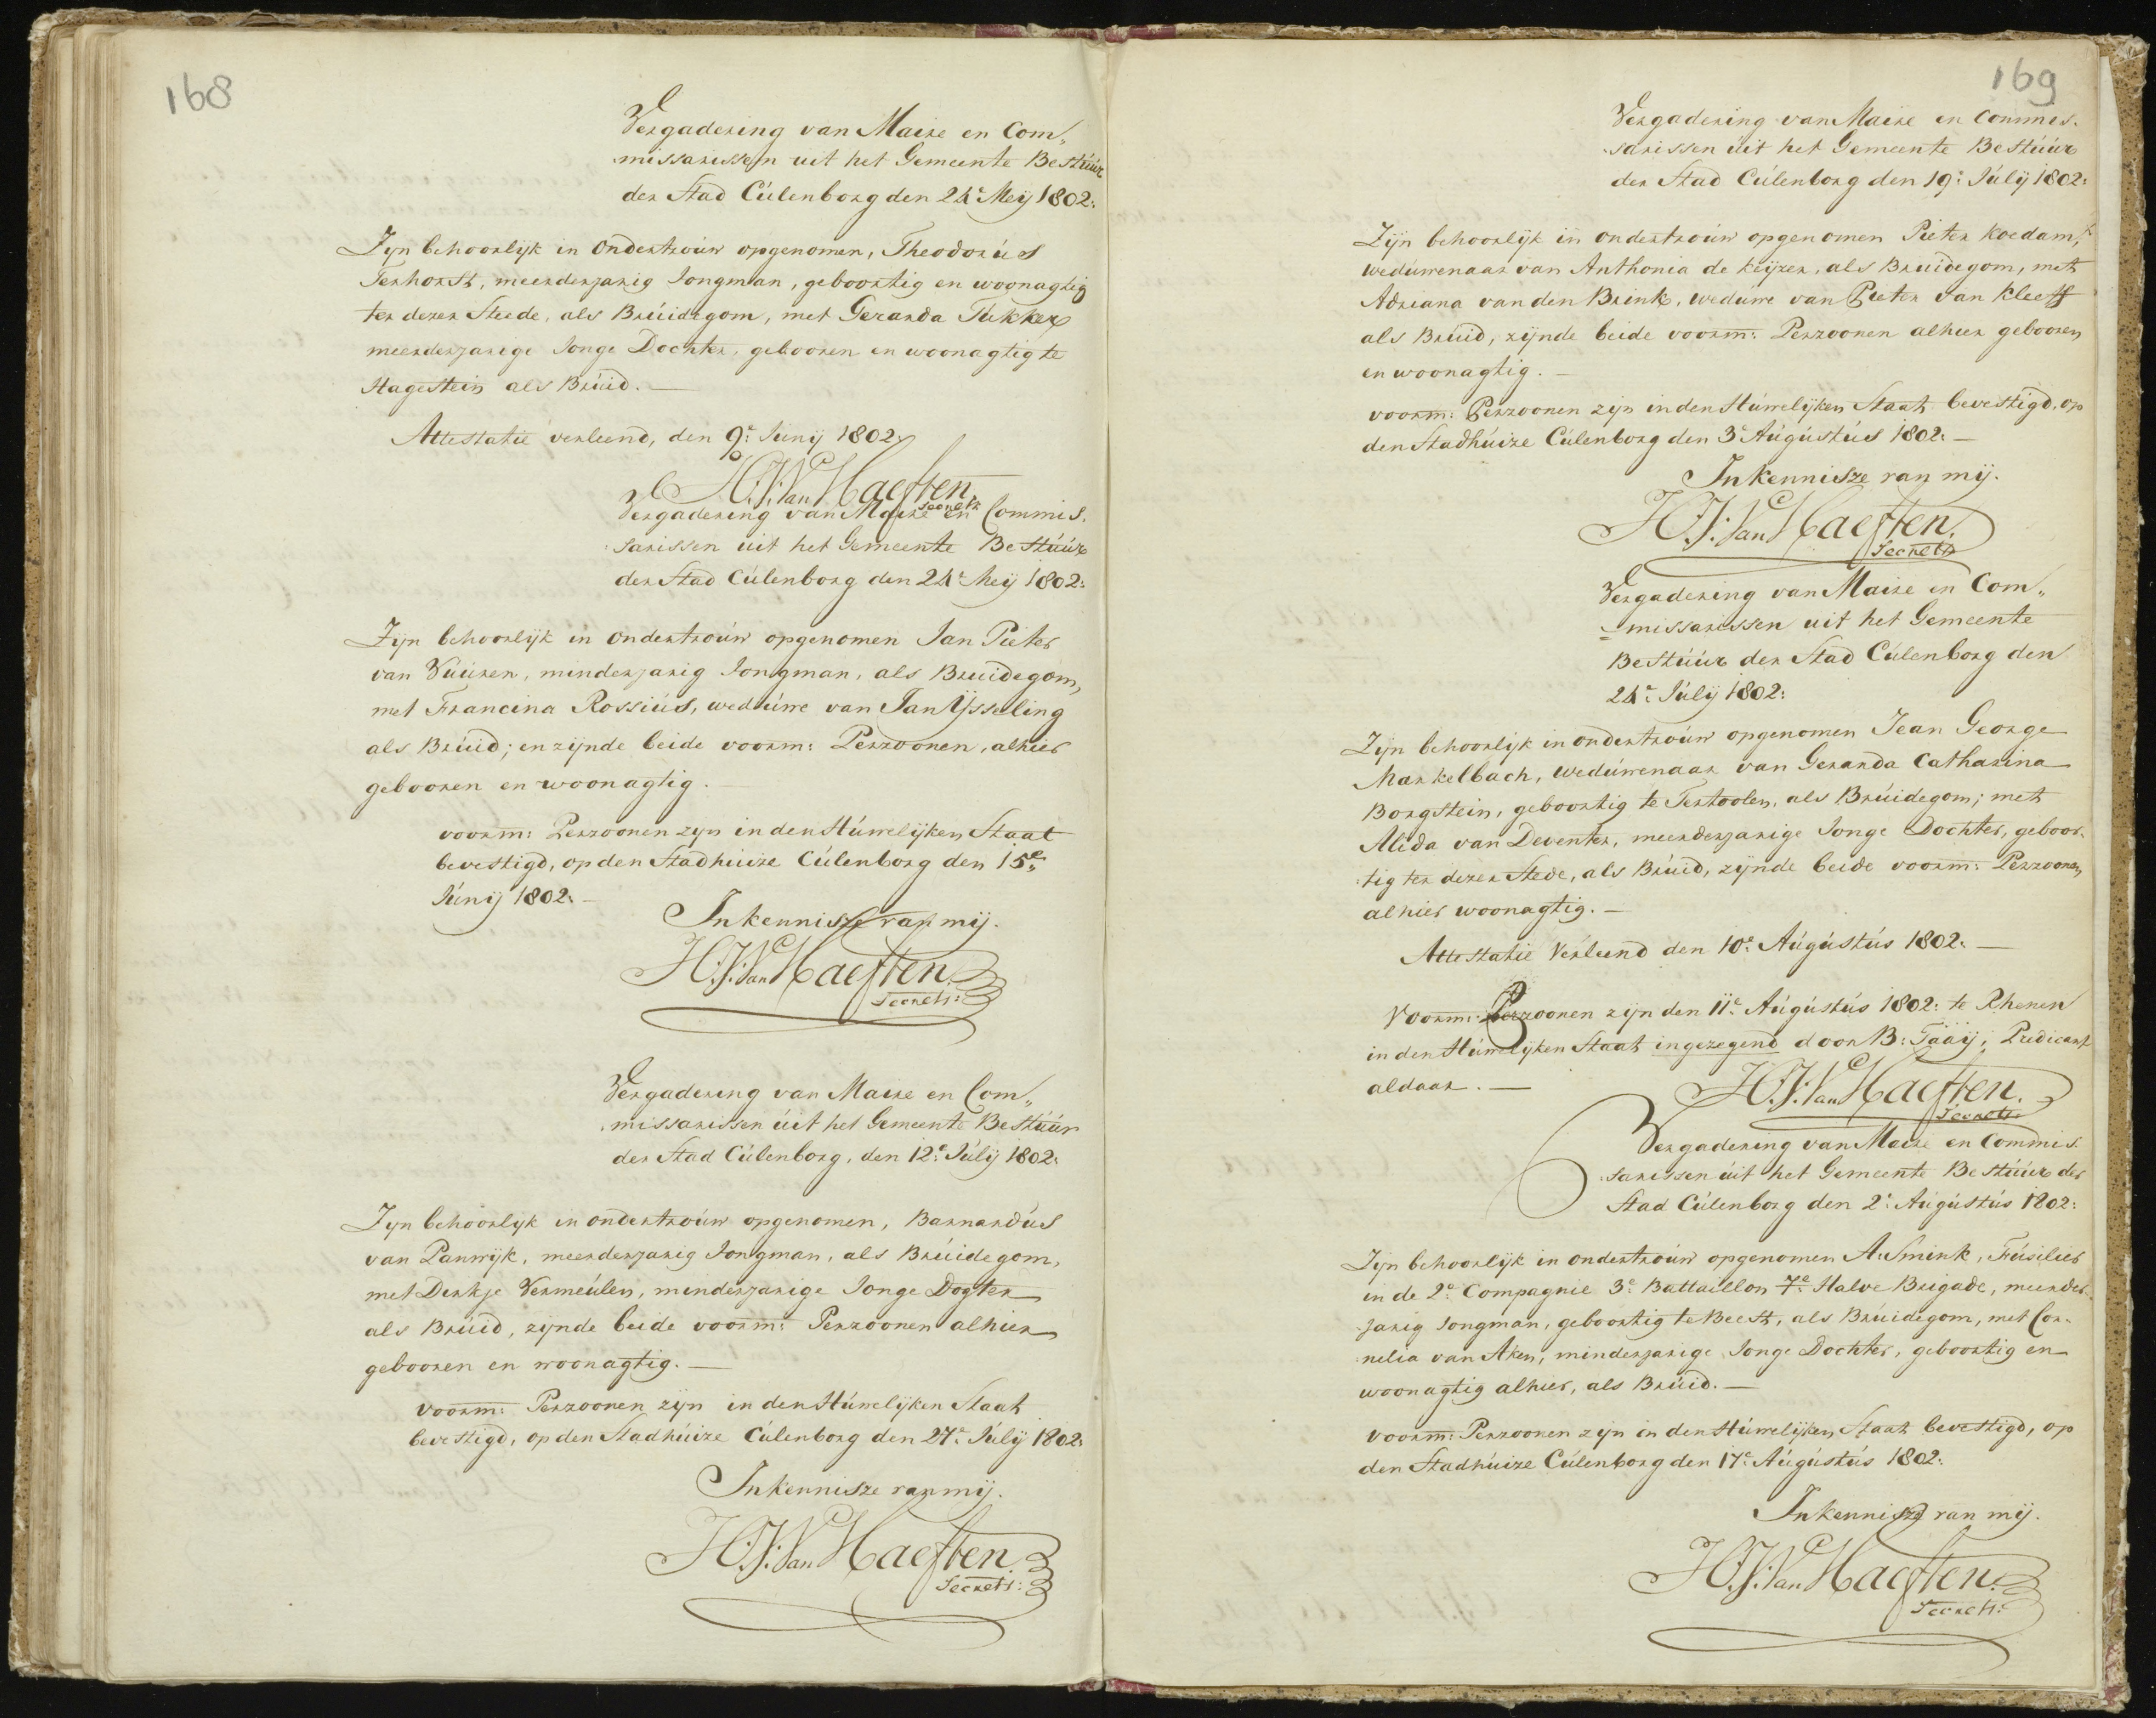 168
Vergadering van Maire en Com„
missarissen uit het Gemeente Bestúúr
der Stad Cúlenborg den 24e Meij 1802:
Zyn behoorlijk in Ondertroúw opgenomen, Theodorús
Terhorst, meerderjarig Jongman, geboortig en woonagtig
ter dezer Steede, als Brúidegom, met Gerarda Tukker
meerderjarege Jonge Dochter, gebooren en woonagtig te
Hagestein als Brúid. —
Attestatie verleend, den 9e: Junij 1802.
H:J: Van Haeften
Secrets
Vergadering van Maire en Commis.
sarissen uit het Gemeente Bestúúr
der Stad Cúlenborg den 24e Meij 1802:
Zijn behoorlijk in ondertroúw opgenomen Jan Pieter
van Vúúren, minderjarig Jongman, als Bruidegom,
met Francina Rossiús, wedúwe van Jan Ysseling
als Brúid; en zijnde beide voorm: Perzoonen, alhier
gebooren en woonagtig. —
voorm: Perzoonen zyn in den Húwelijken Staat
bevestigd, op den Stadhuize Cúlenborg den 15e„
Júnij 1802: —
In kennisze van mij.
H:J: Van Haeften
Secrets:
Vergadering van Maire en Com„
missarissen úit het Gemeente Bestúúr
der Stad Cúlenborg, den 12e: Júlij 1802:
Zyn behoorlyk in ondertroúw opgenomen, Barnardús
van Panwijk, meerderjarig Jongman, als Brúidegom,
met Derkje Vermeúlen, minderjarige Jonge Dogter
als Brúid, zijnde beide voorm: Perzoonen alhier
gebooren en woonagtig. —
voorm: Perzoonen zijn in den Húwelijken Staat
bevestigd, op den Stadhúize Cúlenborg den 27e: Júlij 1802:
In kennisze van mij.
H:J: Van Haeften
Secrets:
169
Vergadering van Maire en Commis.
sarissen úit het Gemeente Bestúúr
der Stad Cúlenborg den 19e: Júlij 1802:
Zijn behoorlijk in ondertroúw opgenomen Pieter Koedam,
wedúwenaar van Anthonia de Keijzer, als Bruidegom, met
Adriana van den Brink, weduwe van Pieter van Kleeff
als Brúid, zijnde beide voorm: Perzoonen alhier gebooren
en woonagtig. —
voorm: Perzoonen zijn in den Húwelijken Staat bevestigd, op
den Stadhúize Cúlenborg den 3e Aúgústús 1802: —
In kennisze van mij.
H:J: Van Haeften.
Secrets
Vergadering van Maire en Com„
missarissen uit het Gemeente
Bestúúr der Stad Cúlenborg den
24e: Júlij 1802:
Zijn behoorlijk in ondertroúw opgenomen Jean George
Markelbach, wedúwenaar van Gerarda Catharina
Borgstein, geboortig te Tertoolen, als Brúidegom; met
Alida van Deventer, meerderjarige Jonge Dochter, geboor-
tig ter dezer Stede, als Brúid, zijnde beide voorm: Perzoonen,
alhier woonagtig. —
Attestatie Verleend den 10e: Aúgústús 1802: —
Voorm: Perzoonen zijn den 11e: Aúgústús 1802: te Rhenen
in den Húwelijken Staat ingezegend door B: Taaij; Predicant
aldaar. —
H:J: Van Haeften.
Secrets
Vergadering van Maire en Commis
sarissen úit het Gemeente Bestúúr der
Stad Cúlenborg den 2e: Aúgústús 1802:
Zyn behoorlijk in ondertroúw opgenomen A: Smink, Fúsilier
in de 2e: Compagnie 3e: Battaillon 7e: Halve Brigade, meerder-
jarig Jongman, geboortig te Beest, als Brúidegom, met Cor-
nelia van Aken, minderjarige Jonge Dochter, geboortig en
woonagtig alhier, als Brúid. —
voorm: Perzoonen zyn in den Húwelijken Staat bevestigd, op
den Stadhúize Cúlenborg den 17e: Aúgústús 1802:
In kennisze van mij.
H:J: Van Haeften.
Secrets: